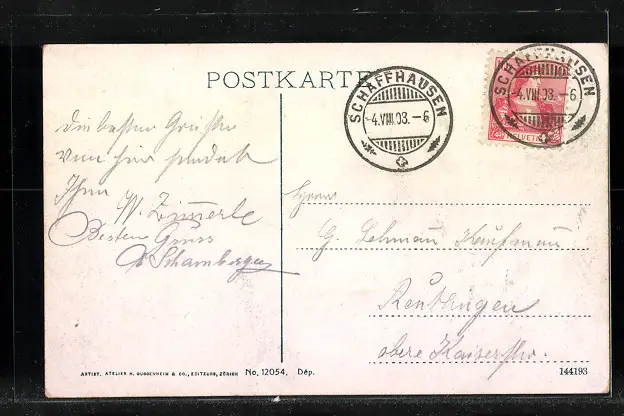 POSTKARTE
SCHAFFHAUSEN
-4.VIII.08.-6
SCHAFFHAUSEN
-4.VIII.08.-6
HELVETIA
Die besten Grüße
von hier sendet
Ihnen W. Zimmerle
Besten Gruss
Schamberger
Herrn
G. Lehmann Kaufmann
Reutlingen
obere Kaiserstr.
ARTIST. ATELIER H. GUGGENHEIM & CO., EDITEURS, ZÜRICH No. 12054. Dép.
144193